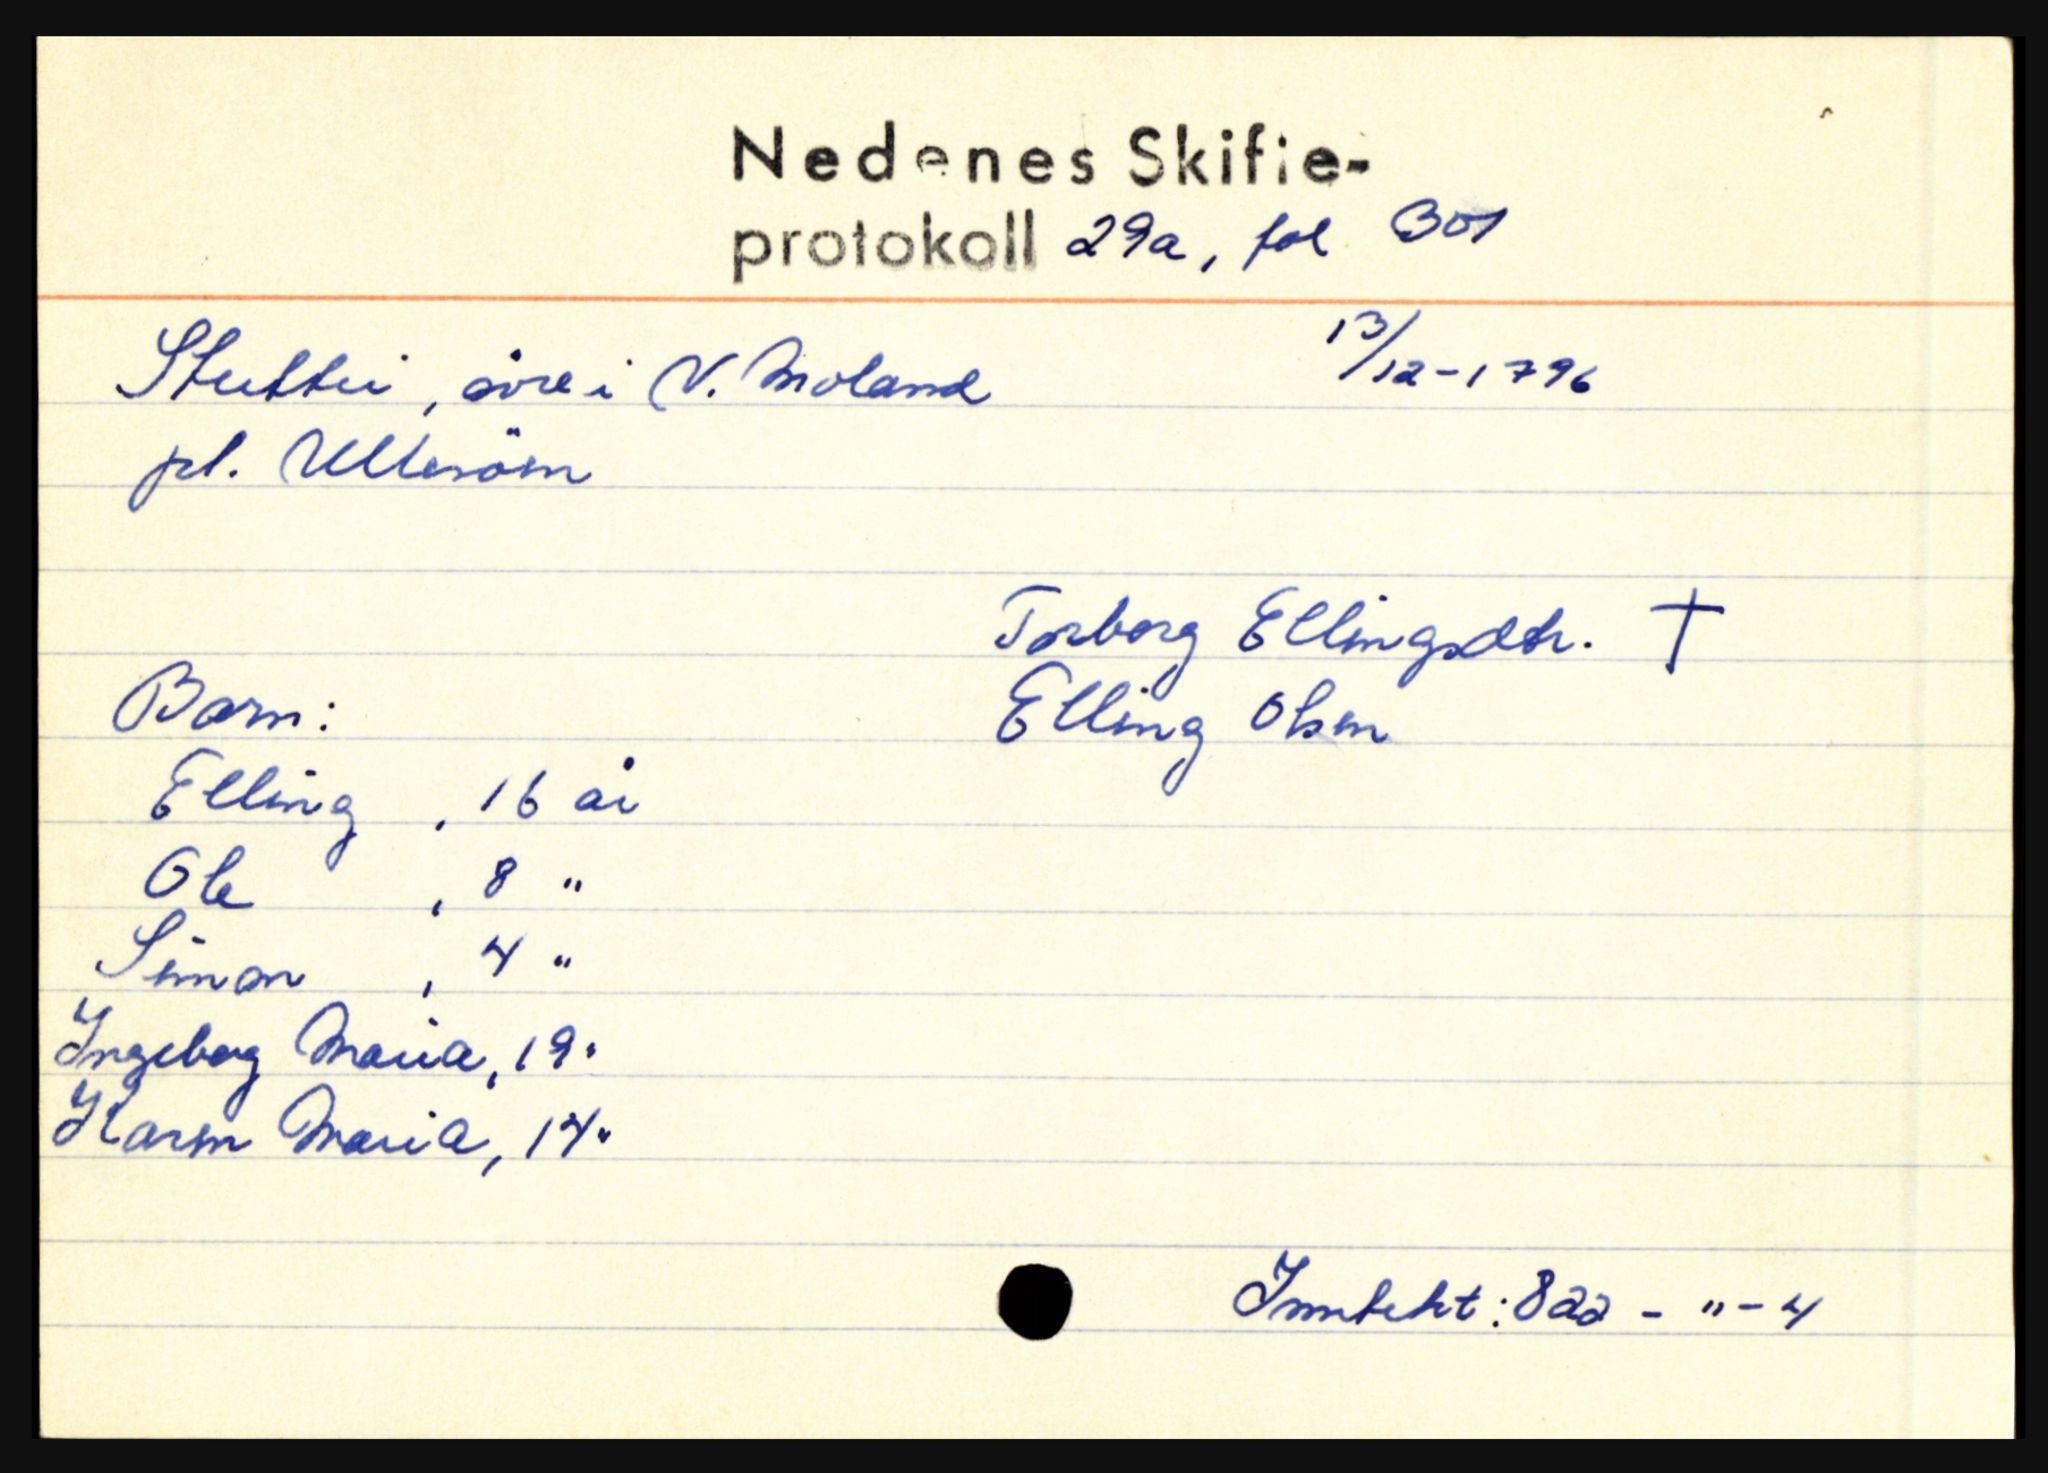 Nedenes Skifte-
protokoll 29a, fol 301
Stuttei, övre i V. Moland 13/12-1796
pl. Ulleröen
Torborg Ellingsdtr. †
Barn: Elling Olsen
Elling , 16 år
Ole , 8 "
Simon , 4 "
Ingeborg Maria, 19 "
Karen Maria, 14 "
Inntekt: 822 - " - 4